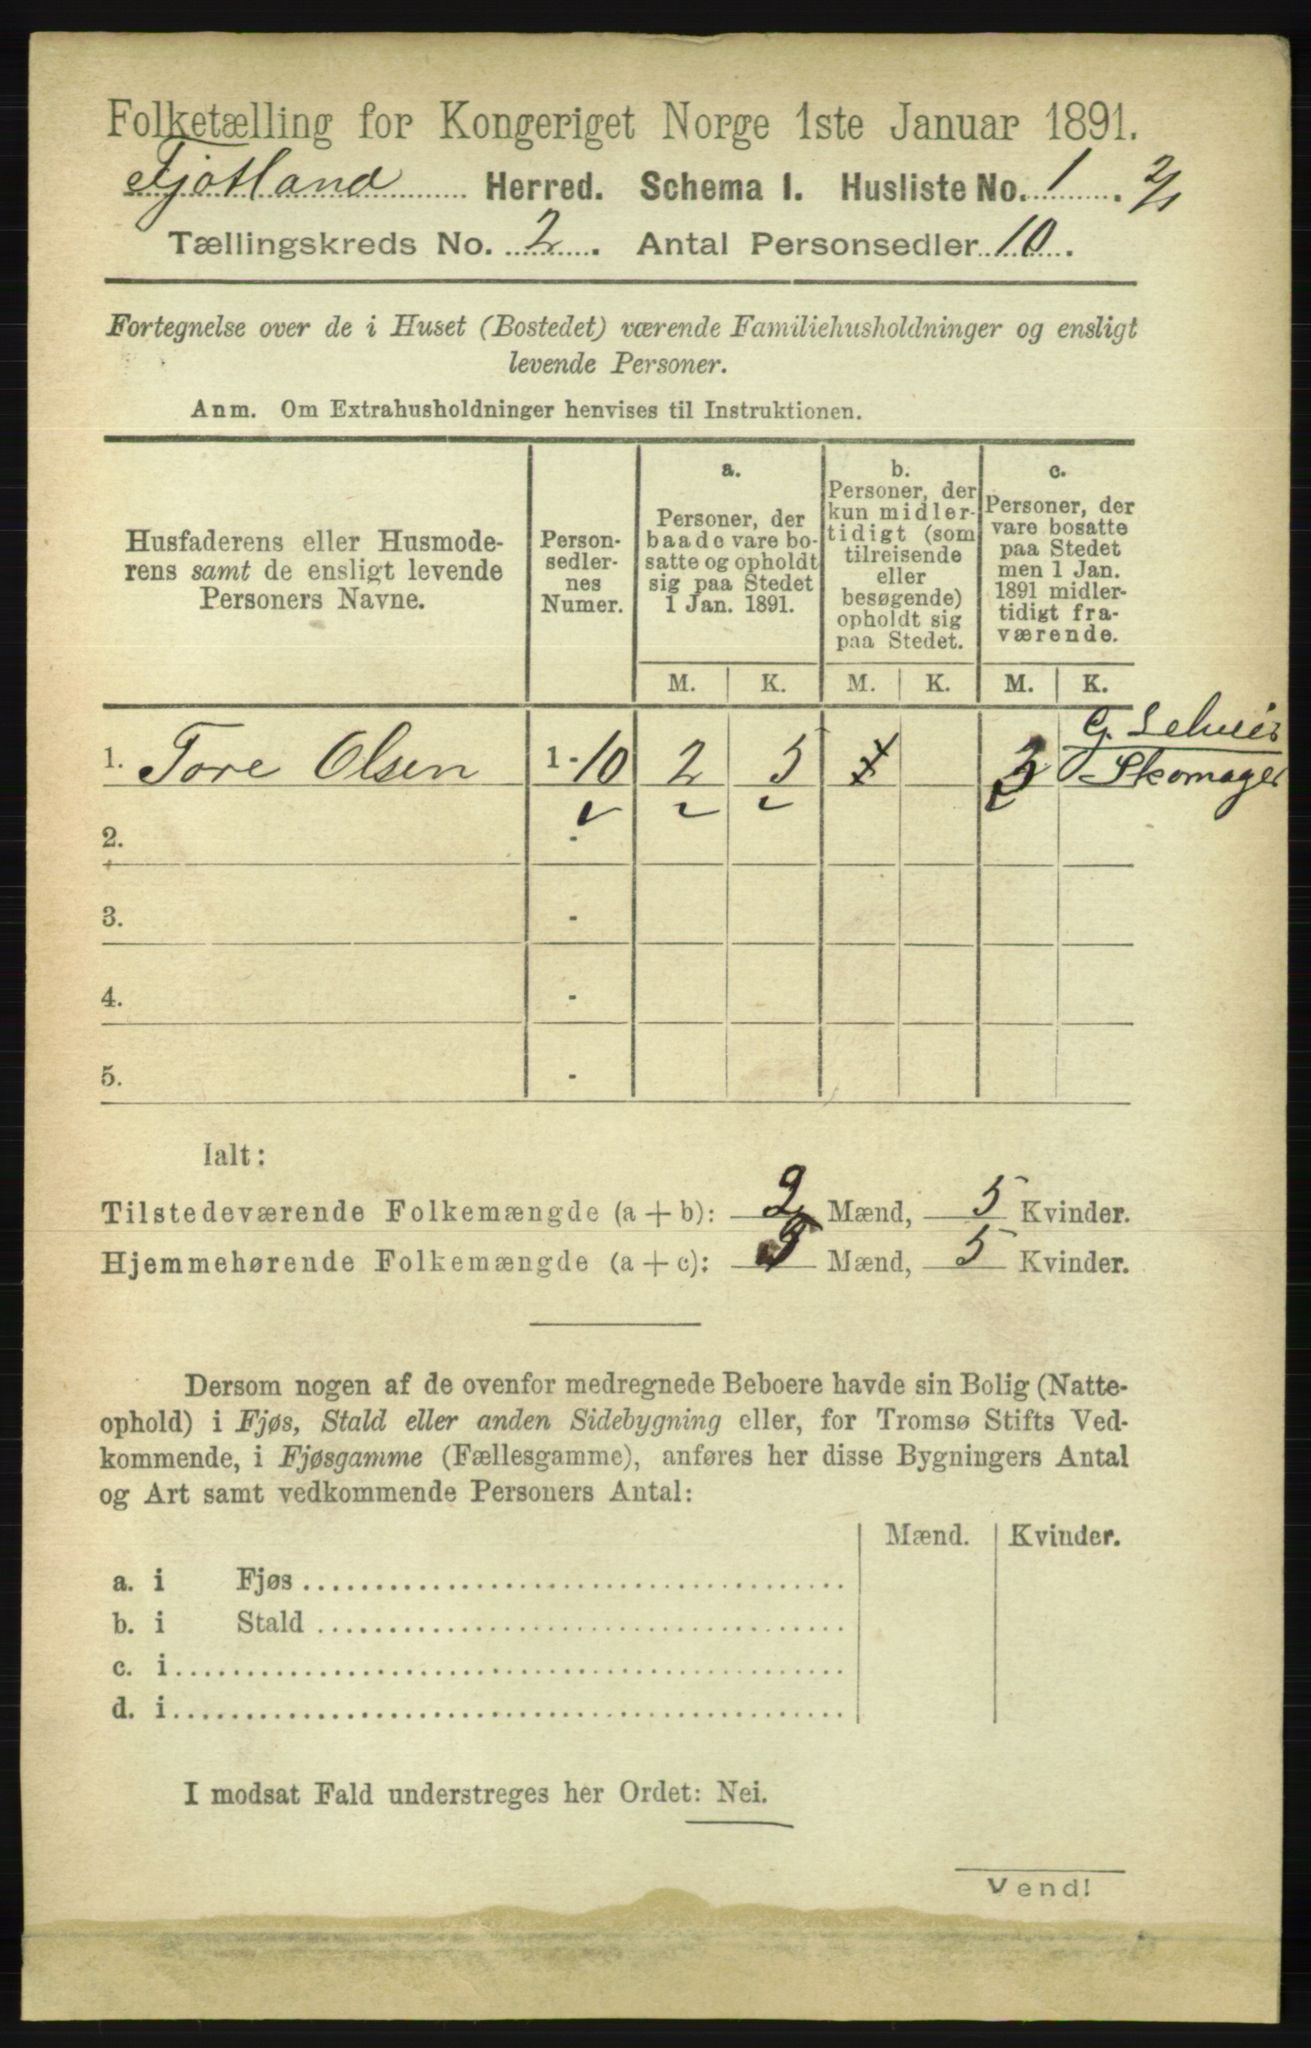 Folketælling for Kongeriget Norge 1ste Januar 1891.
Fjotland Herred. Schema I. Husliste No. 1. 2/1
Tællingskreds No. 2. Antal Personsedler 10.
Fortegnelse over de i Huset (Bostedet) værende Familiehusholdninger og ensligt
levende Personer.
Anm. Om Extrahusholdninger henvises til Instruktionen.
Husfaderens eller Husmode-
rens samt de ensligt levende
Personers Navne.
Person-
sedler-
nes
Numer.
a.
Personer, der
baade vare bo-
satte og opholdt
sig paa Stedet
1 Jan. 1891.
b.
Personer, der
kun midler-
tidigt (som
tilreisende
eller
besøgende)
opholdt sig
paa Stedet.
c.
Personer, der
vare bosatte
paa Stedet
men 1 Jan.
1891 midler-
tidigt fra-
værende.
M. K. M. K. M. K.
G. Selveier
1. Tore Olsen 1-10 2 5 3 Skomager
2. -
3. -
4. -
5. -
Ialt:
Tilstedeværende Folkemængde (a + b): 2 Mænd, 5 Kvinder.
Hjemmehørende Folkemængde (a + c): 5 Mænd, 5 Kvinder.
Dersom nogen af de ovenfor medregnede Beboere havde sin Bolig (Natte-
ophold) i Fjøs, Stald eller anden Sidebygning eller, for Tromsø Stifts Ved-
kommende, i Fjøsgamme (Fællesgamme), anføres her disse Bygningers Antal
og Art samt vedkommende Personers Antal:
Mænd. Kvinder.
a. i Fjøs
b. i Stald
c. i
d. i
I modsat Fald understreges her Ordet: Nei.
Vend!